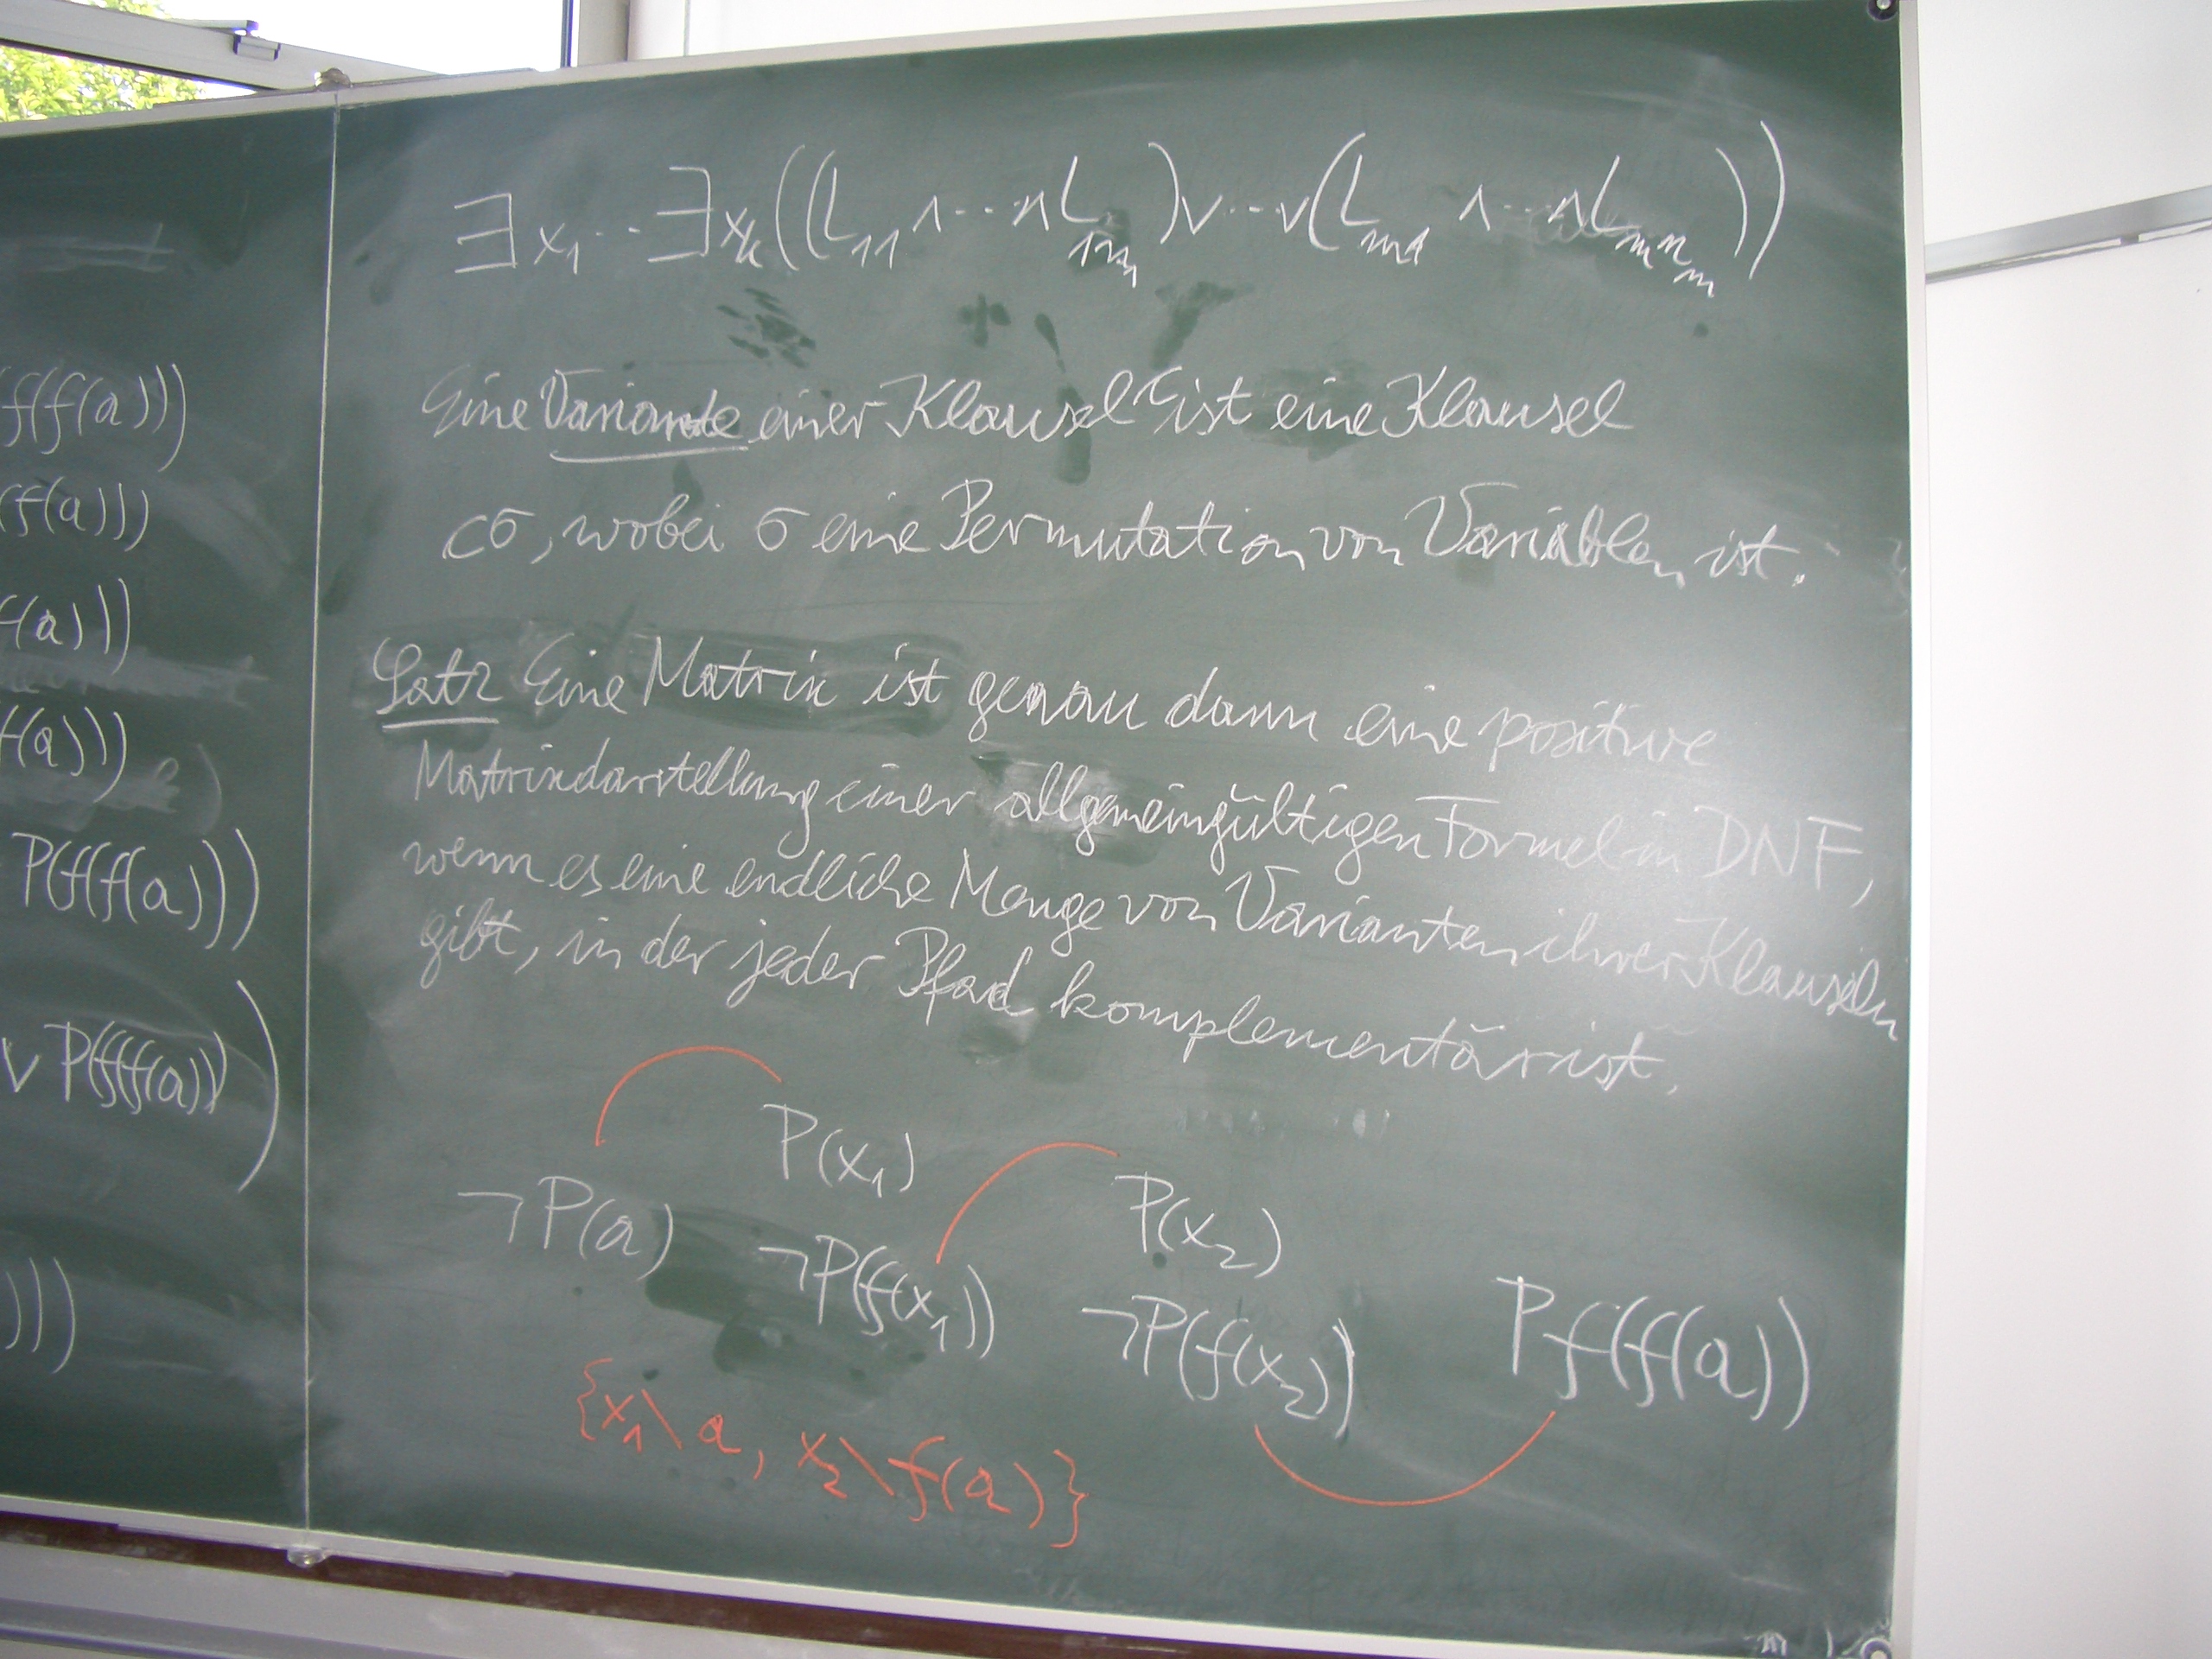 f(f(a)))
(f(a)))
f(a)))
f(a)))
P(f(f(a)))
∨ P(f(f(a))))
)))
∃x₁...∃xₖ((L₁₁∧...∧L₁ₙ₁)∨...∨(Lₘ₁∧...∧Lₘₙₘ))
Eine Variante einer Klausel c ist eine Klausel
cσ, wobei σ eine Permutation von Variablen ist.
Satz Eine Matrix ist genau dann eine positive
Matrixdarstellung einer allgemeingültigen Formel in DNF,
wenn es eine endliche Menge von Varianten ihrer Klauseln
gibt, in der jeder Pfad komplementär ist.
P(x₁)
¬P(a)
P(x₂)
¬P(f(x₁))
¬P(f(x₂))
Pf(f(a))
{x₁\a, x₂\f(a)}